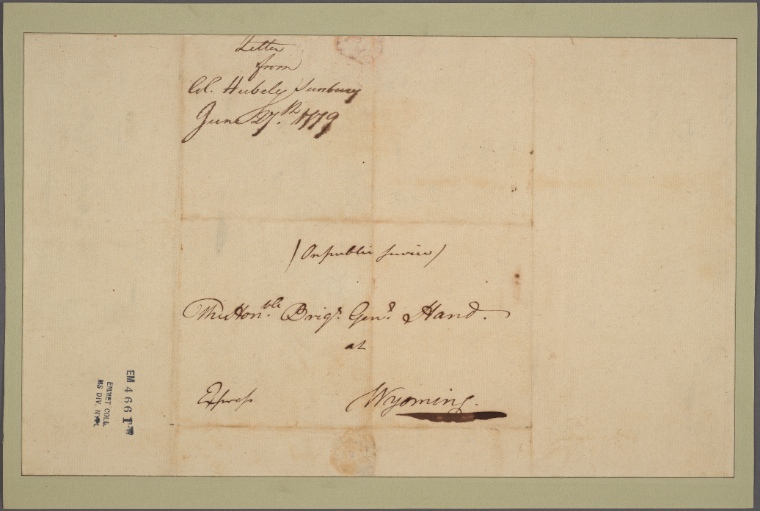 Letter
from
Col. Hubely Sunbury
June 27.th 1779
(On public service)
The Hon.ble Brig.r Gen.l Hand.
at
Express
Wyoming.
EM 4661
EMMET COLL
MS DIV. NYPL